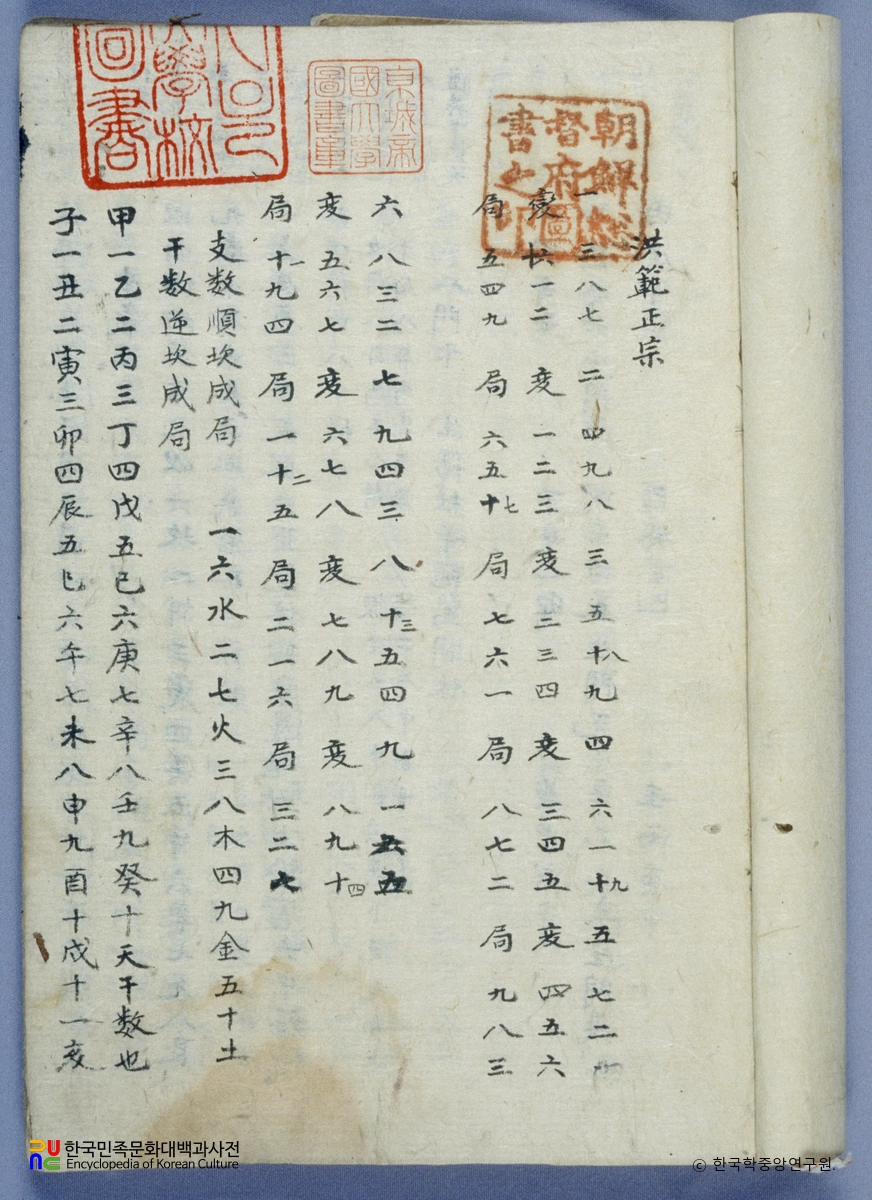 朝鮮總
督府圖
書之印
京城帝
國大學
圖書章
大學校
圖書
洪範正宗
一 三八七 二 四九八 三 五十八九 四 六一十九 五 七二
變 六一二 変 一二三 変 二三四 変 三四五 変 四五六
局 五四九 局 六五十七 局 七六一 局 八七二 局 九八三
六 八三二 七 九四三 八 十三五四 九 一 五
変 五六七 変 六七八 変 七八九 変 八九十四
局 十一九四 局 一十二五 局 二一六 局 三二七
支数順坎成局 一六水二七火三八木四九金五十土
干数逆坎成局
甲一乙二丙三丁四戊五己六庚七辛八壬九癸十天干数也
子一丑二寅三卯四辰五巳六午七未八申九酉十戌十一亥
한국민족문화대백과사전
Encyclopedia of Korean Culture
© 한국학중앙연구원